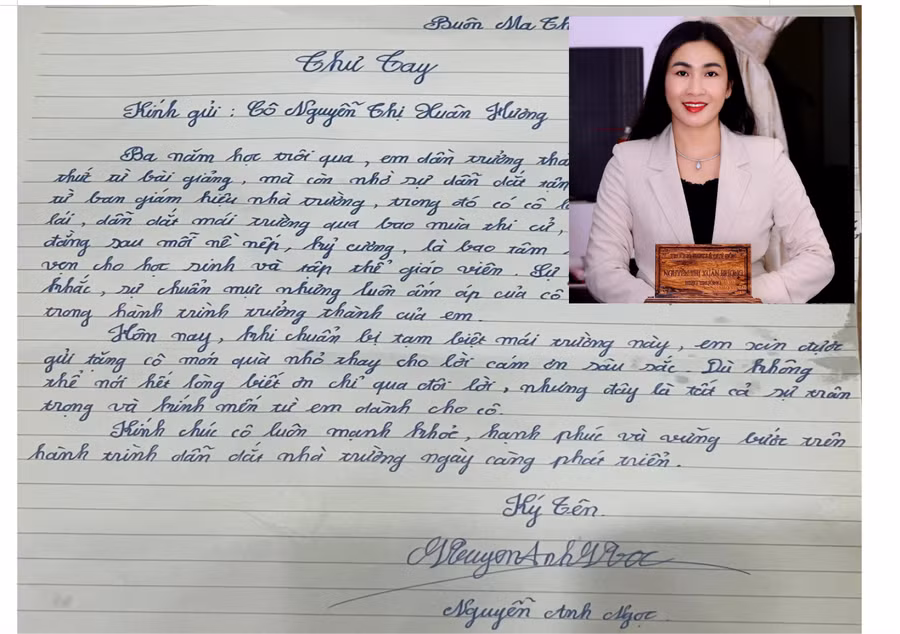 Buôn Ma Th
Thư Tay
Kính gửi : Cô Nguyễn Thị Xuân Hương
Ba năm học trôi qua, em dần trưởng tha
thức từ bài giảng, mà còn nhờ sự dẫn dắt tận
từ ban giám hiệu nhà trường, trong đó có cô l
lái, dẫn dắt mái trường qua bao mùa thi cử,
đằng sau mỗi nề nếp, kỷ cương, là bao tâm
vọn cho học sinh và tập thể giáo viên. Sự
khắc, sự chuẩn mực nhưng luôn ấm áp của cô
trong hành trình trưởng thành của em.
Hôm nay, khi chuẩn bị tạm biệt mái trường này, em xin được
gửi tặng cô món quà nhỏ thay cho lời cám ơn sâu sắc. Dù không
thể nói hết lòng biết ơn chỉ qua đôi lời, nhưng đây là tất cả sự trân
trọng và kính mến từ em dành cho cô.
Kính chúc cô luôn mạnh khỏe, hạnh phúc và vững bước trên
hành trình dẫn dắt nhà trường ngày càng phát triển.
Ký Tên
NguyenAnhNgoc
Nguyễn Anh Ngọc
NGUYỄN THỊ XUÂN HƯƠNG